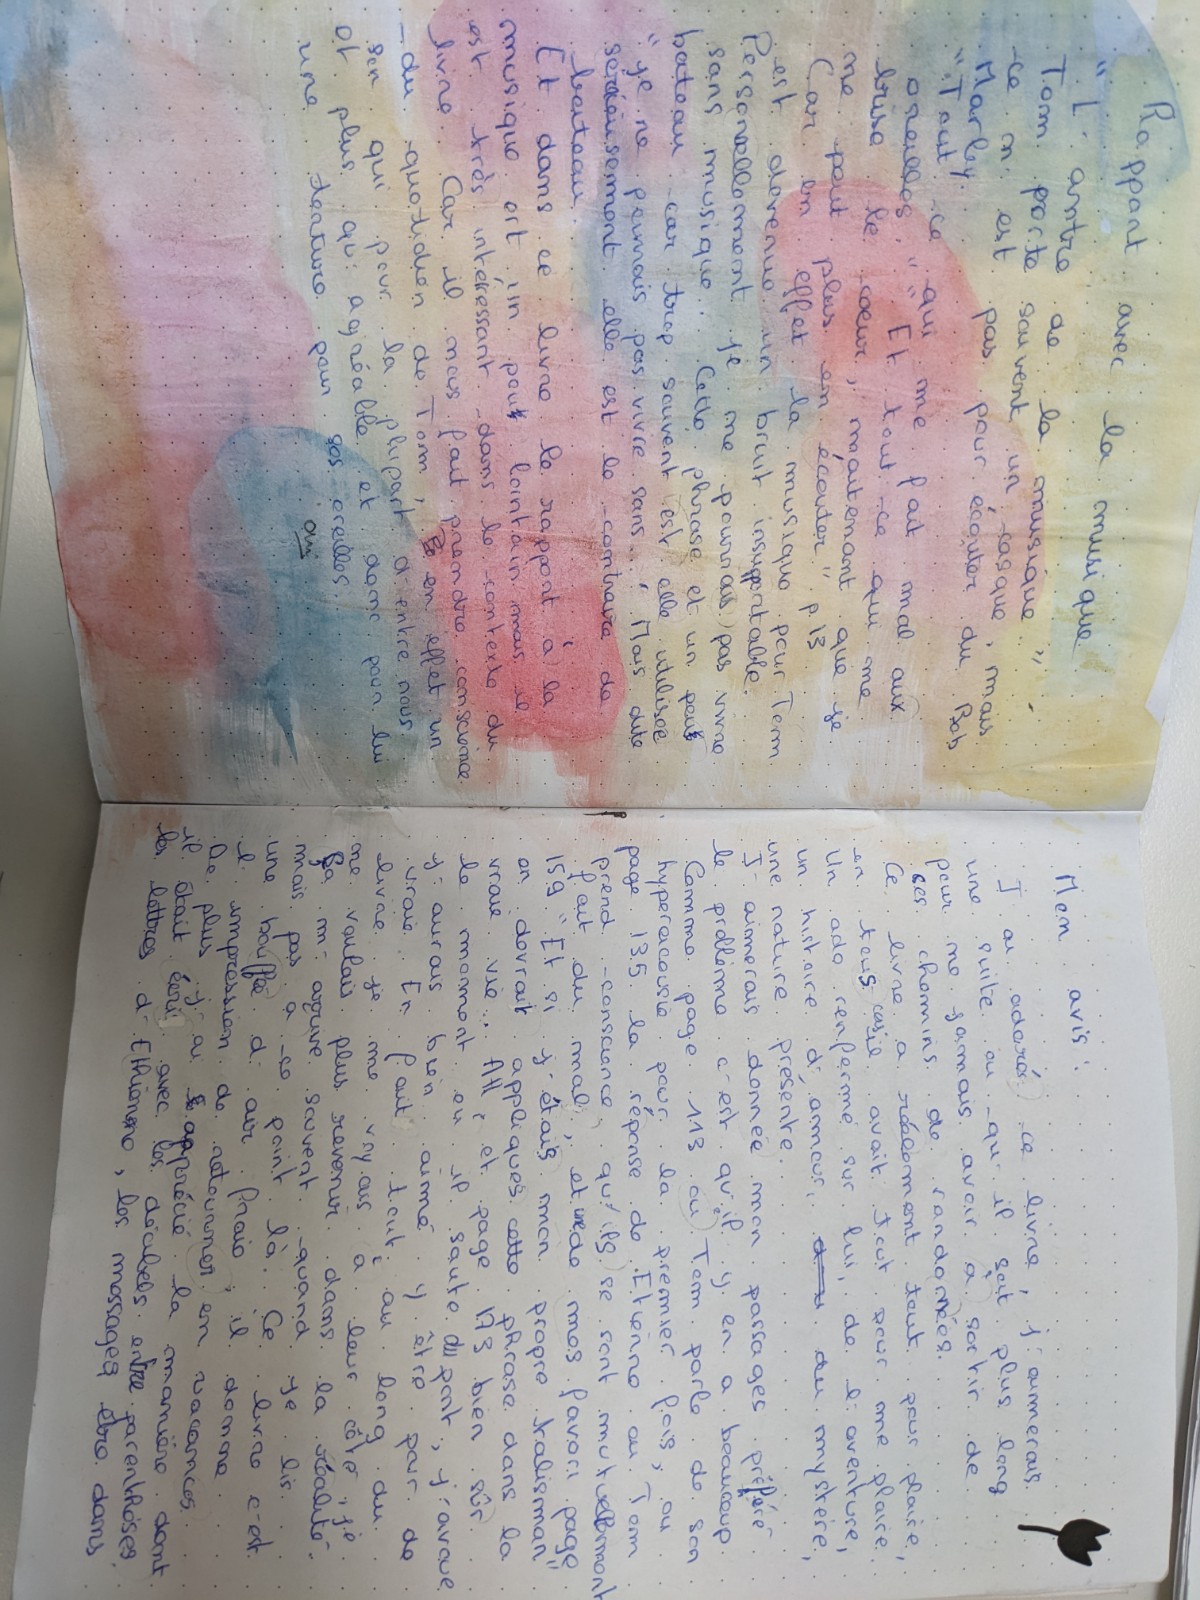 Rapport avec la musique
" L'antre de la musique "
Tom porte souvent un casque, mais
ce n'est pas pour écouter du Bob
Marley.
" Tout ce qui me fait mal aux
oreilles " " Et tout ce qui me
brise le coeur, maintenant que je
ne peut plus en écouter " p.13
Car en effet la musique pour Tom
est devenue un bruit insupportable.
Personnellement je me pourrais pas vivre
sans musique. Cette phrase et un peu
bateau car trop souvent est elle utilisée
" je ne pourrais pas vivre sans... " Mais dite
sérieusement elle est le contraire de
bateau.
Et dans ce livre le rapport à la
musique ort in peu lointain mais il
est très intéressant dans le contexte du
livre. Car il nous fait prendre conscience
du quotidien de Tom, en effet un
son qui pour la plupart d'entre nous
et plus qu'agréable et donc pour lui
une torture pour ses oreilles.
oui
Mon avis :
J'ai adoré ce livre, j'aimerais
une suite ou qu'il soit plus long
pour ne jamais avoir à sortir de
ses chemins de randonées.
Ce livre a réélement tout pour plaire,
en tous cas il avait tout pour me plaire.
Un ado renfermé sur lui, de l'aventure,
un histoire d'amour, du mystère,
une nature présente.
J'aimerais donnée mon passages préféré
le problème c'est qu'il y en a beaucoup
Comme page 113 ou Tom parle de son
hyperacousie pour la premier fois, ou
page 135 la réponse de Etienne ou Tom
prend conscience qu'ils se sont mutuellement
fait du mal, et de mes favori page
159 " Et si j'étais mon propre talisman "
on devrait appliques cette phrase dans la
vraie vie. AH ! et page 173 bien sûr
le moment ou il saute du pont, j'avoue
j'aurais bien aimé y être pour de
vraie. En fait tout au long du
livre je me vryais à leur côté, je
ne voulais plus revenir dans la réalité.
Ça m'arrive souvent quand je lis.
mais pas à ce point là. Ce livre c'est
une bouffé d'air fraie, il donne
l'impression de retourner en vacances.
De plus j'ai apprécié la manière dont
il était écrit avec les décibels entre parenthèses,
les lettres d'Ethienne, les messages être dans